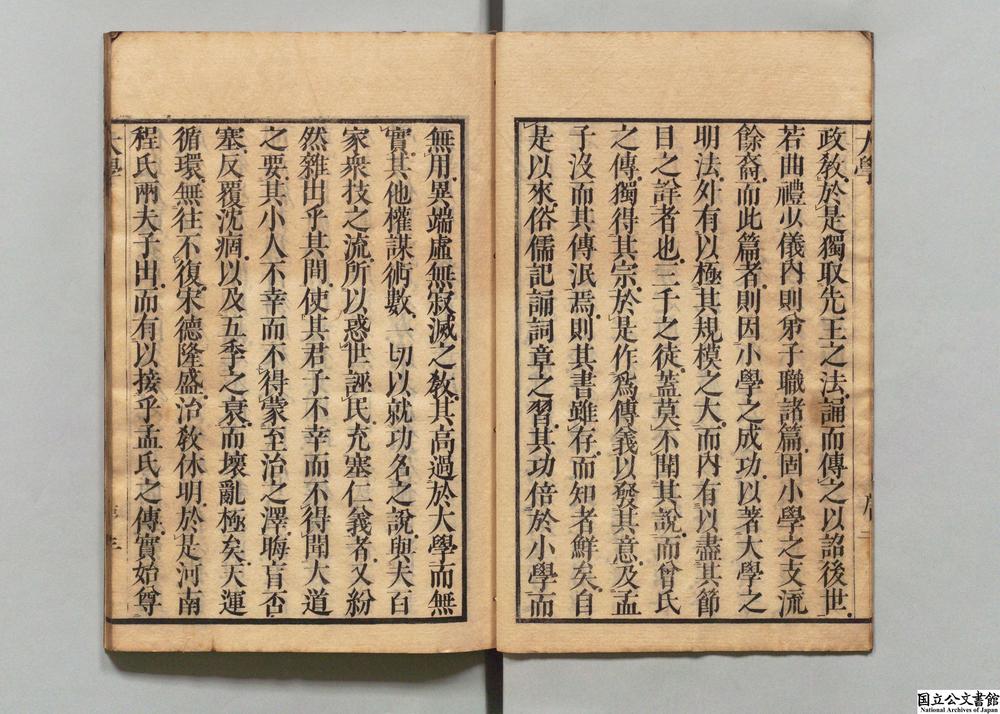 政教於是獨取先王之法誦而傳之以詔後世
若曲禮少儀內則弟子職諸篇固小學之支流
餘裔而此篇者則因小學之成功以著大學之
明法外有以極其規模之大而內有以盡其節
目之詳者也三千之徒蓋莫不聞其說而曾氏
之傳獨得其宗於是作爲傳義以發其意及孟
子沒而其傳泯焉則其書雖存而知者鮮矣自
是以來俗儒記誦詞章之習其功倍於小學而
無用異端虛無寂滅之教其高過於大學而無
實其他權謀術數一切以就功名之說與夫百
家衆技之流所以惑世誣民充塞仁義者又紛
然雜出乎其間使其君子不幸而不得聞大道
之要其小人不幸而不得蒙至治之澤晦盲否
塞反覆沈痼以及五季之衰而壞亂極矣天運
循環無往不復宋德隆盛治教休明於是河南
程氏兩夫子出而有以接乎孟氏之傳實始尊
国立公文書館
National Archives of Japan